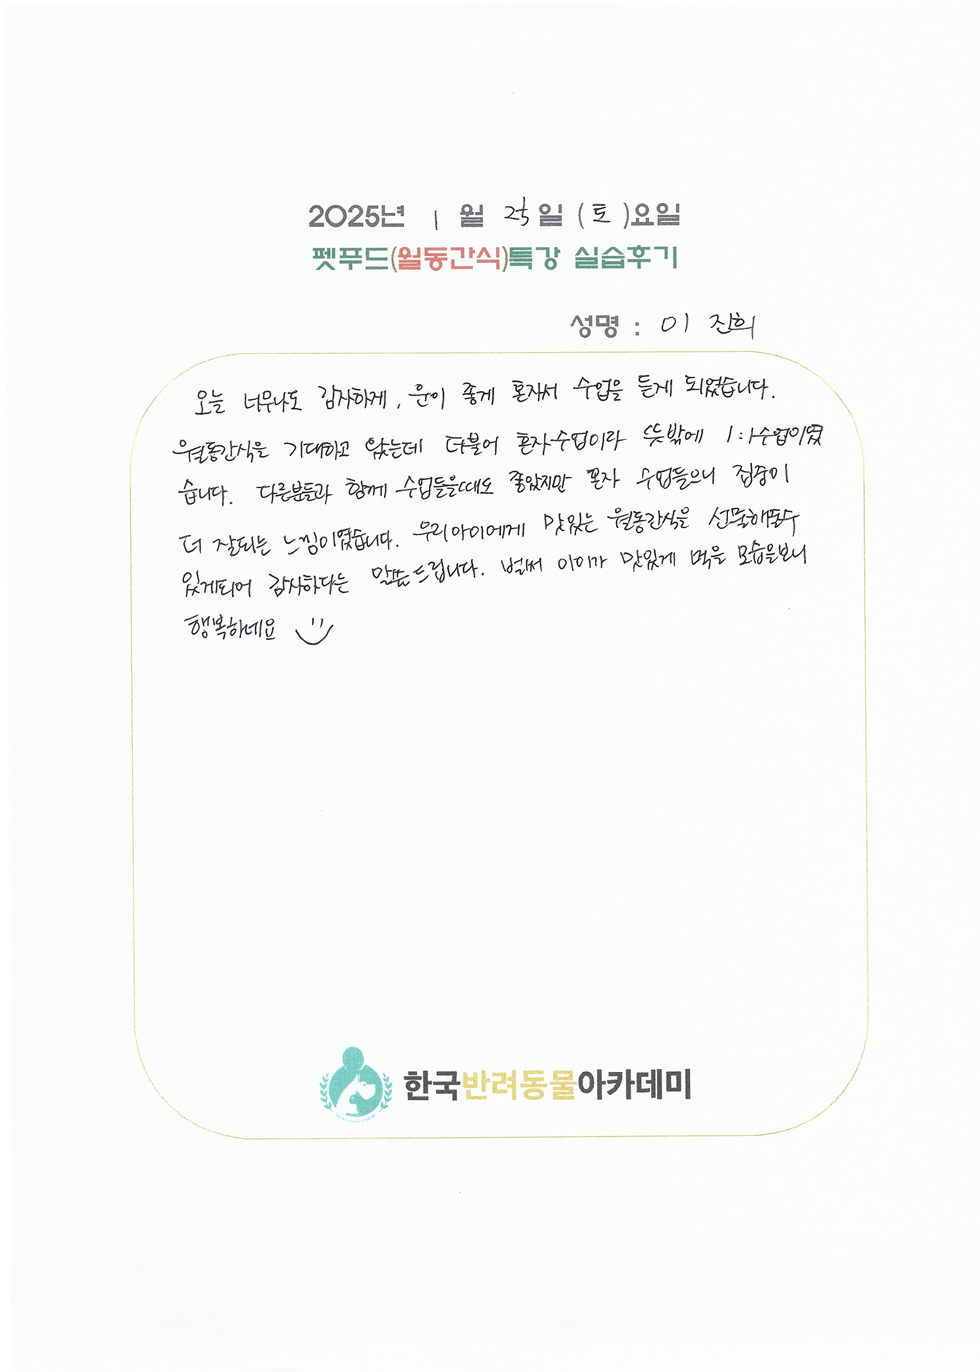 2025년 1월 25일 (토)요일
펫푸드(월동간식)특강 실습후기
성명 : 이 진희
오늘 너무나도 감사하게, 운이 좋게 혼자서 수업을 듣게 되었습니다.
월동간식을 기대하고 왔는데 더불어 혼자수업이라 뜻밖에 1:1수업이였
습니다. 다른분들과 함께 수업들을때도 좋았지만 혼자 수업들으니 집중이
더 잘되는 느낌이였습니다. 우리아이에게 맛있는 월동간식을 선물해줄수
있게되어 감사하다는 말씀드립니다. 벌써 아이가 맛있게 먹을 모습을보니
행복하네요
한국반려동물아카데미